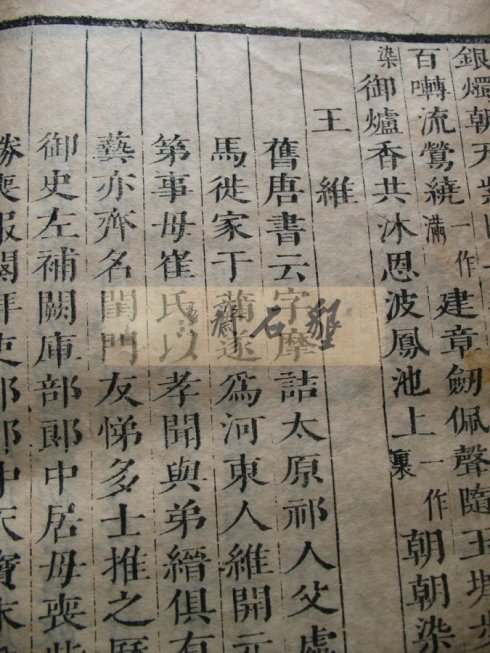 銀燭朝天
百囀流鶯繞一作滿建章劒佩聲隨玉墀步
染御爐香共沐恩波鳳池上一作裏朝朝染
王維
舊唐書云字摩詰太原祁人父處
馬徙家于蒲遂爲河東人維開元
第事母崔氏以孝聞與弟縉俱有
藝亦齊名閨門友悌多士推之歷
御史左補闕庫部郎中居母喪
勝喪服闋拜吏部郎中天寶末